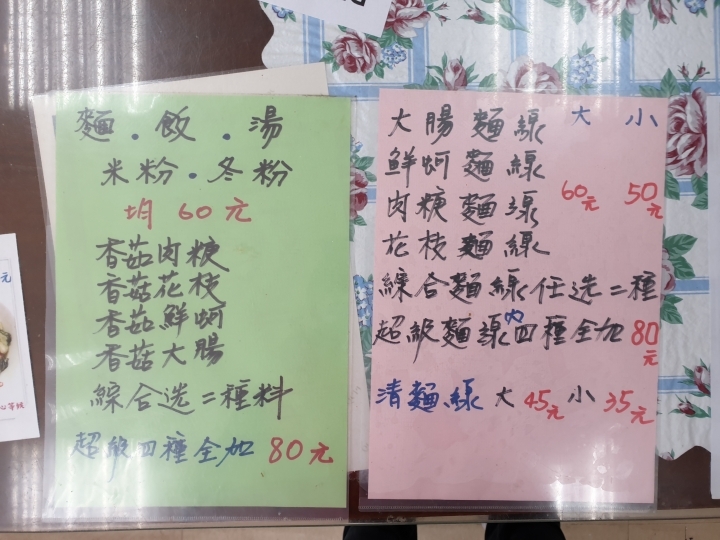 麵．飯．湯
米粉．冬粉
均 60元
香茹肉粳
香菇花枝
香茹鮮蚵
香菇大腸
綜合选二種料
超級四種全加 80元
大腸麵線 大 小
鮮蚵麵線
肉粳麵線 60元 50元
花枝麵線
綜合麵線任选二種
超級麵線內四種全加 80元
清麵線 大 45元 小 35元
元